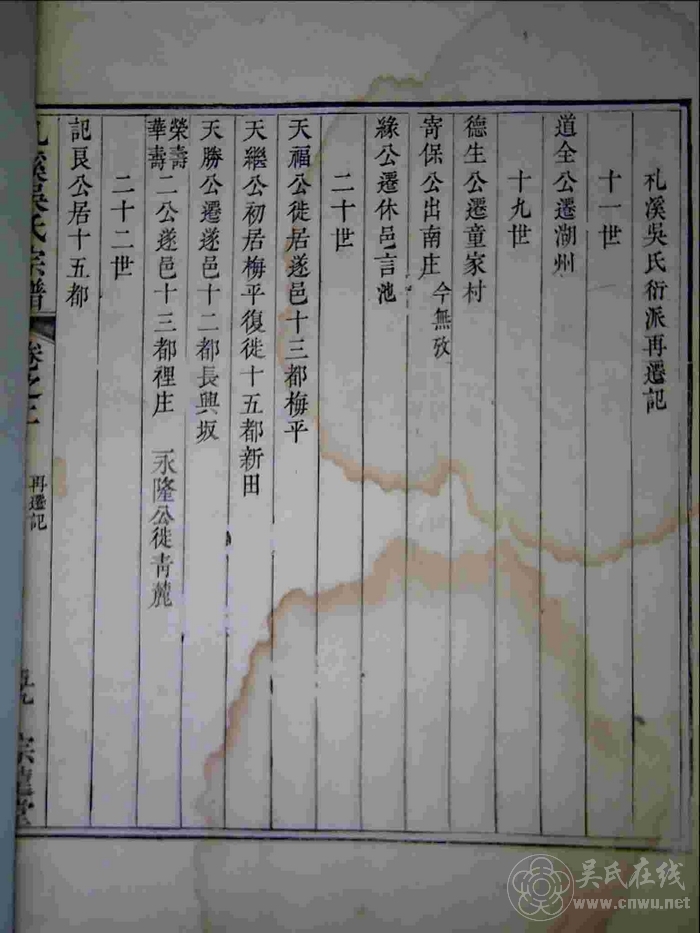 札溪吳氏衍派再遷記
十一世
道全公遷湖州
十九世
德生公遷童家村
寄保公出南庄 今無攷
緣公遷休邑言池
二十世
天福公徙居遂邑十三都梅平
天繼公初居梅平復徙十五都新田
天勝公遷遂邑十二都長興坂
榮壽華壽二公遂邑十三都裡庄 永隆公徙青麓
二十二世
記良公居十五都
溪吳氏宗譜 卷之
再遷記
吴氏在线
www.cnwu.net